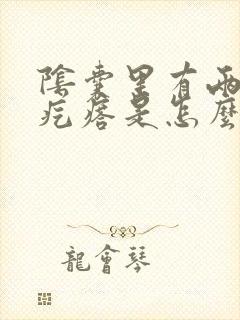 陰囊里有兩
疙瘩是怎麼
龍會琴